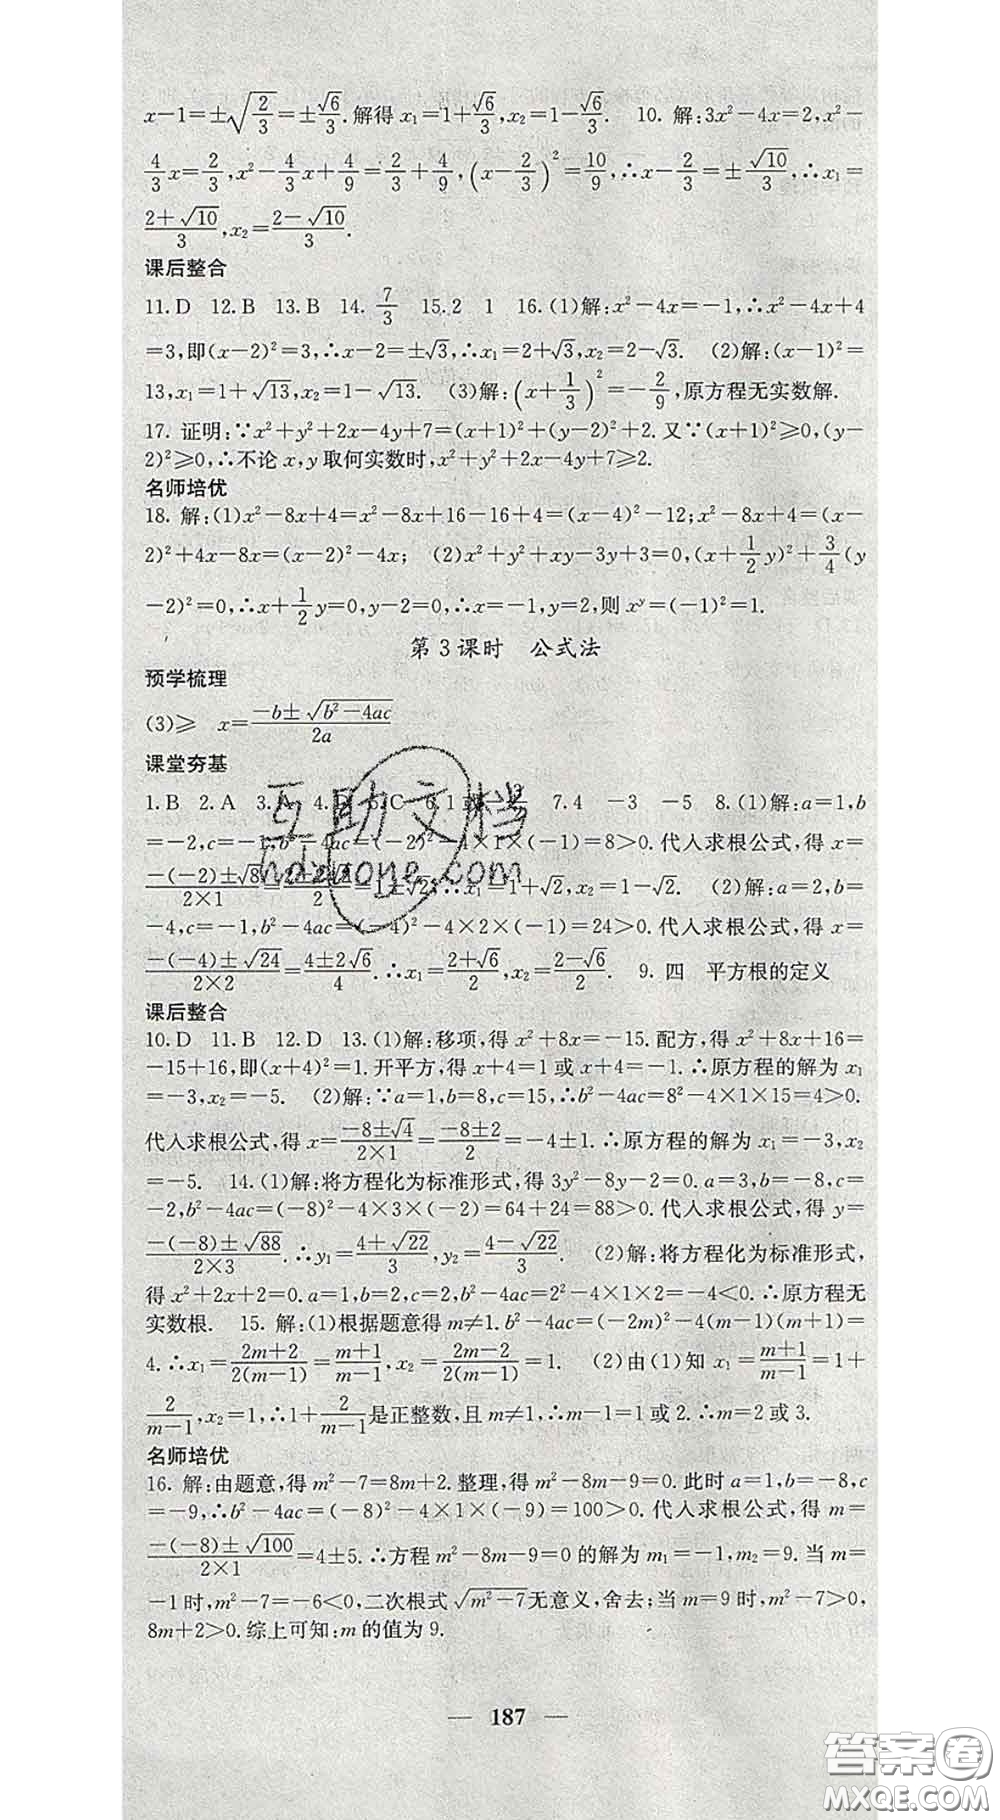 x−1=±√(2/3)=±√6/3.解得x₁=1+√6/3,x₂=1−√6/3. 10. 解:3x²−4x=2,x²−
4/3x=2/3,x²−4/3x+4/9=2/3+4/9,(x−2/3)²=10/9,∴x−2/3=±√10/3,∴x₁=
(2+√10)/3,x₂=(2−√10)/3.
课后整合
11.D 12.B 13.B 14.7/3 15.2 1 16.(1)解:x²−4x=−1,∴x²−4x+4
=3,即(x−2)²=3,∴x−2=±√3,∴x₁=2+√3,x₂=2−√3. (2)解:(x−1)²=
13,x₁=1+√13,x₂=1−√13. (3)解:(x+1/3)²=−2/9,原方程无实数解.
17. 证明:∵x²+y²+2x−4y+7=(x+1)²+(y−2)²+2.又∵(x+1)²≥0,(y−
2)²≥0,∴不论x,y取何实数时,x²+y²+2x−4y+7≥2.
名师培优
18. 解:(1)x²−8x+4=x²−8x+16−16+4=(x−4)²−12;x²−8x+4=(x−
2)²+4x−8x=(x−2)²−4x; (2)x²+y²+xy−3y+3=0,(x+1/2y)²+3/4(y
−2)²=0,∴x+1/2y=0,y−2=0,∴x=−1,y=2,则x^y=(−1)²=1.
第3课时 公式法
预学梳理
(3)≥ x=(−b±√(b²−4ac))/2a
课堂夯基
1.B 2.A 3.A 4.D 5.C 6.1或 7.4 −3 −5 8.(1)解:a=1,b
=−2,c=−1,b²−4ac=(−2)²−4×1×(−1)=8>0.代入求根公式,得x=
(−(−2)±√8)/(2×1)= =1±√2,∴x₁=1+√2,x₂=1−√2. (2)解:a=2,b=
−4,c=−1,b²−4ac=(−4)²−4×2×(−1)=24>0.代入求根公式,得x=
(−(−4)±√24)/(2×2)=(4±2√6)/4.∴x₁=(2+√6)/2,x₂=(2−√6)/2. 9. 四 平方根的定义
课后整合
10.D 11.B 12.D 13.(1)解:移项,得x²+8x=−15.配方,得x²+8x+16=
−15+16,即(x+4)²=1.开平方,得x+4=1或x+4=−1.∴原方程的解为x₁
=−3,x₂=−5. (2)解:∵a=1,b=8,c=15,∴b²−4ac=8²−4×1×15=4>0.
代入求根公式,得x=(−8±√4)/(2×1)=(−8±2)/2=−4±1.∴原方程的解为x₁=−3,x₂
=−5. 14.(1)解:将方程化为标准形式,得3y²−8y−2=0.a=3,b=−8,c=
−2,b²−4ac=(−8)²−4×3×(−2)=64+24=88>0.代入求根公式,得y=
(−(−8)±√88)/(2×3).∴y₁=(4+√22)/3,y₂=(4−√22)/3. (2)解:将方程化为标准形式,
得x²+2x+2=0.a=1,b=2,c=2,b²−4ac=2²−4×1×2=−4<0.∴原方程无
实数根. 15. 解:(1)根据题意得m≠1.b²−4ac=(−2m)²−4(m−1)(m+1)=
4.∴x₁=(2m+2)/(2(m−1))=(m+1)/(m−1),x₂=(2m−2)/(2(m−1))=1. (2)由(1)知x₁=(m+1)/(m−1)=1+
2/(m−1),x₂=1,∴1+2/(m−1)是正整数,且m≠1,∴m−1=1或2.∴m=2或3.
名师培优
16. 解:由题意,得m²−7=8m+2.整理,得m²−8m−9=0.此时a=1,b=−8,c
=−9,∴b²−4ac=(−8)²−4×1×(−9)=100>0.代入求根公式,得m=
(−(−8)±√100)/(2×1)=4±5.∴方程m²−8m−9=0的解为m₁=−1,m₂=9.当m=
−1时,m²−7=−6<0,二次根式√(m²−7)无意义,舍去;当m=9时,m²−7>0,
8m+2>0.综上可知:m的值为9.
— 187 —
互助文档
hdzuone.com
答案圈
MXQE.COM